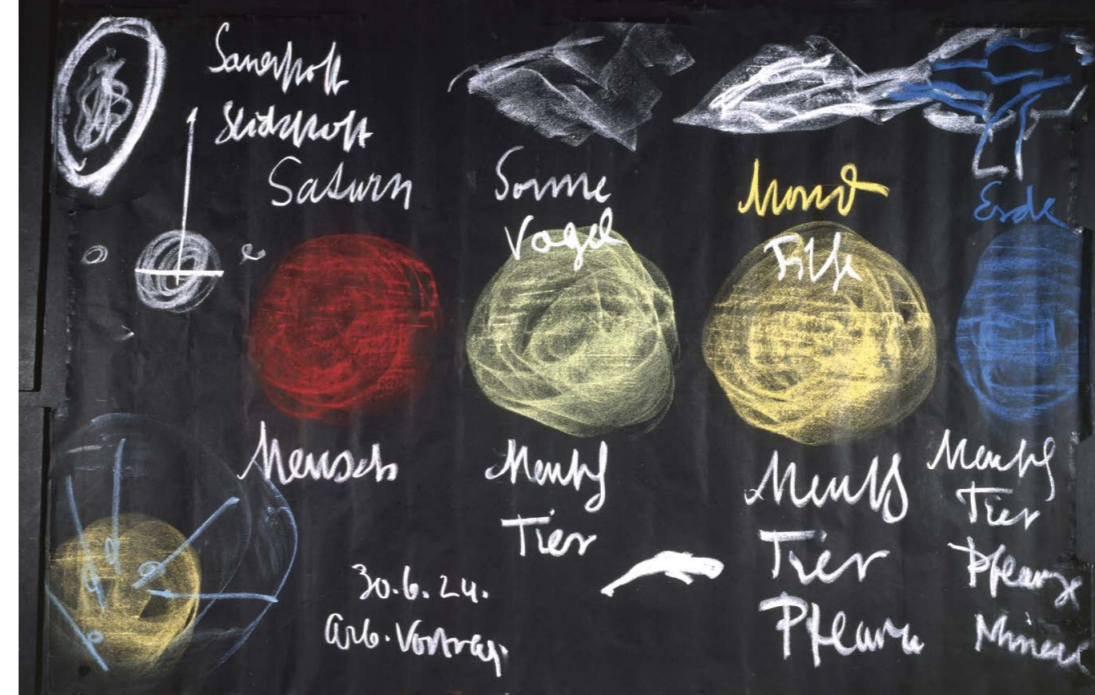 Sauerstoff
Stickstoff
Saturn
Sonne
Mond
Erde
Vogel
Fische
Mensch
Mensch
Tier
Mensch
Tier
Pflanze
Mensch
Tier
Pflanze
Mineral
30.6.24.
Arb. Vortrag.